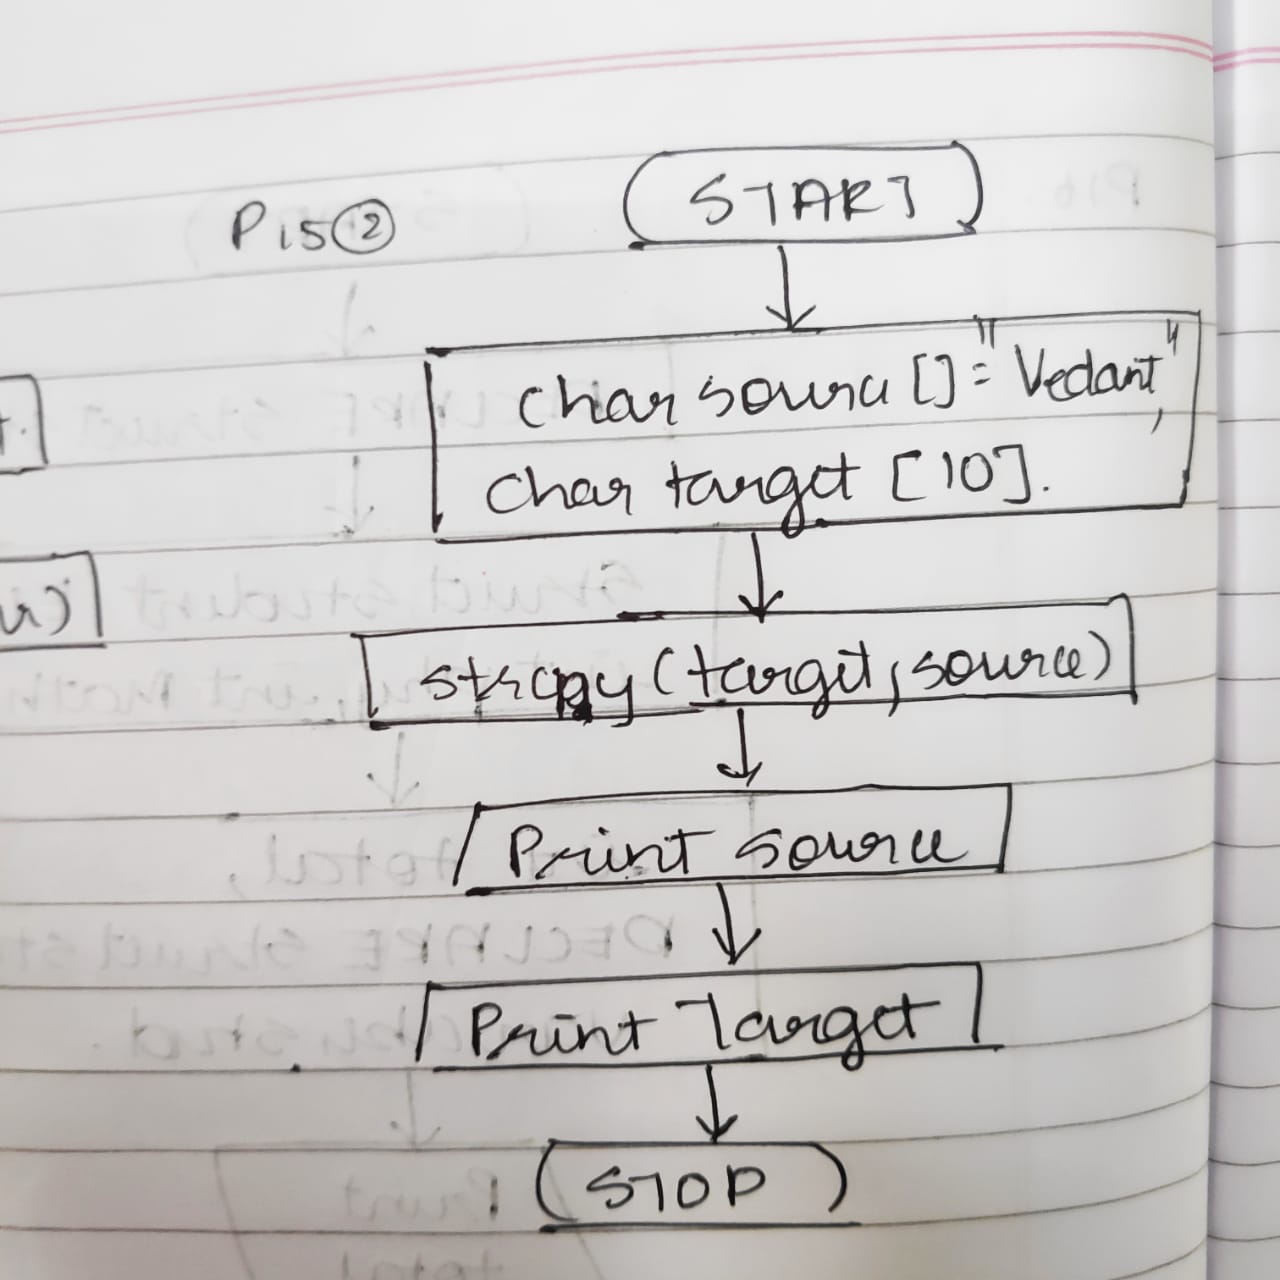 P15②
START
char source [] = "Vedant",
char target [10].
strcpy (target, source)
Print source
Print Target
STOP